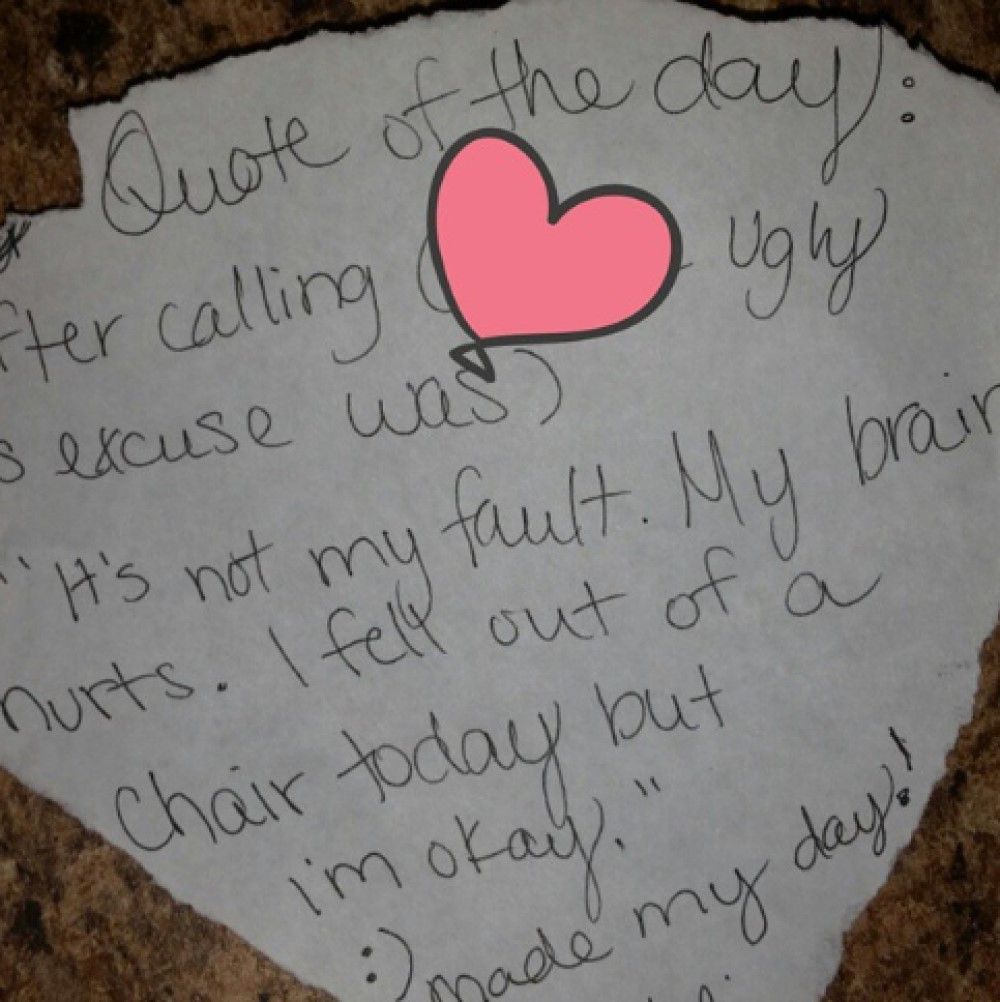 Quote of the day:
fter calling ( ugly
s excuse was)
"It's not my fault. My brain
hurts. I fell out of a
Chair today but
im okay."
:) made my day!